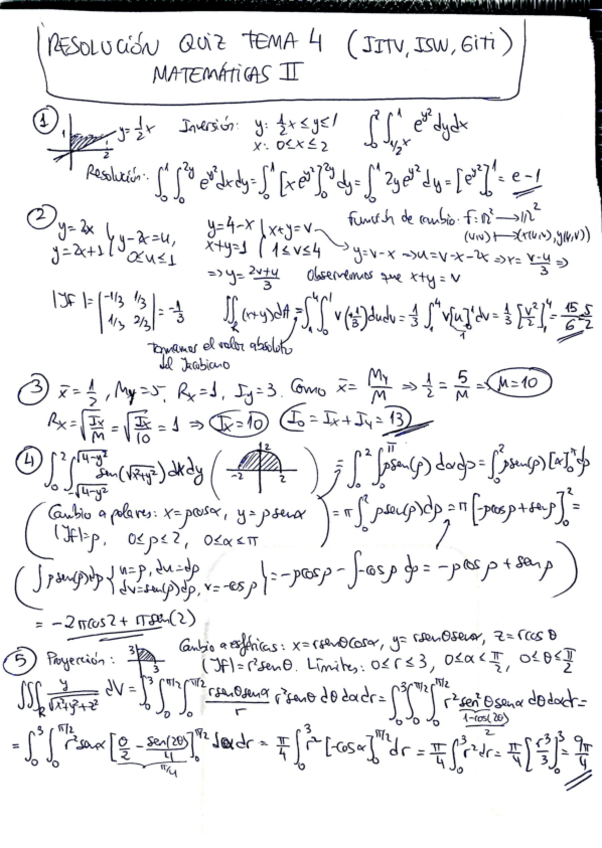 RESOLUCIÓN QUIZ TEMA 4 (IITV, ISW, GITI)
MATEMÁTICAS II
① 1 2 y=½x Inversión: y: ½x≤y≤1 x: 0≤x≤2 ∫₀² ∫_{1/2x}^1 e^{y²} dy dx
Resolución: ∫₀¹ ∫₀^{2y} e^{y²} dx dy = ∫₀¹ [x e^{y²}]₀^{2y} dy = ∫₀¹ 2y e^{y²} dy = [e^{y²}]₀¹ = e-1
② y=2x y=2x+1 } y-2x=u, 0≤u≤1 y=4-x x+y=1 } x+y=v 1≤v≤4 Función de cambio: f: ℝ² → ℝ²
(u,v) ↦ (x(u,v), y(u,v))
y=v-x → u=v-x-2x → x= (v-u)/3 ⇒
⇒ y= (2v+u)/3 Observemos que x+y=v
|Jf| = |-1/3 1/3 1/3 2/3| = -1/3 ∬_R (x+y)dA = ∫₁⁴ ∫₀¹ v(+1/3) du dv = 1/3 ∫₁⁴ v[u]₀¹ dv = 1/3 [v²/2]₁⁴ = 15/6 = 5/2
Tomamos el valor absoluto
del Jacobiano
③ x̄=1/2, My=5, Rx=1, Iy=3. Como x̄= My/M ⇒ 1/2 = 5/M ⇒ M=10
Rx = √(Ix/M) = √(Ix/10) = 1 ⇒ Ix=10 I₀ = Ix+Iy = 13
④ ∫₀² ∫_{-√(4-y²)}^{√(4-y²)} sen(√(x²+y²)) dx dy ( -2 2 2 ) = ∫₀² ∫₀^π ρsen(ρ) dα dρ = ∫₀² ρsen(ρ) [α]₀^π dρ
( Cambio a polares: x=ρcosα, y=ρsenα
|Jf|=ρ, 0≤ρ≤2, 0≤α≤π ) = π ∫₀² ρsen(ρ) dρ = π [-ρcosρ + senρ]₀² =
( ∫ρsen(ρ)dρ { u=ρ, du=dρ dv=sen(ρ)dρ, v=-cosρ } = -ρcosρ - ∫-cosρ dρ = -ρcosρ + senρ )
= -2πcos2 + πsen(2)
⑤ Proyección: 3 3 Cambio a esféricas: x=rsenθcosα, y=rsenθsenα, z=rcosθ
|Jf|=r²senθ. Límites: 0≤r≤3, 0≤α≤π/2, 0≤θ≤π/2
∭_R y/√(x²+y²+z²) dV = ∫₀³ ∫₀^{π/2} ∫₀^{π/2} (rsenθsenα)/r r²senθ dθ dα dr = ∫₀³ ∫₀^{π/2} ∫₀^{π/2} r²sen²θ senα dθ dα dr =
(1-cos(2θ))/2
= ∫₀³ ∫₀^{π/2} r²senα [θ/2 - sen(2θ)/4]₀^{π/2} dα dr = π/4 ∫₀³ r² [-cosα]₀^{π/2} dr = π/4 ∫₀³ r² dr = π/4 [r³/3]₀³ = 9π/4
π/4